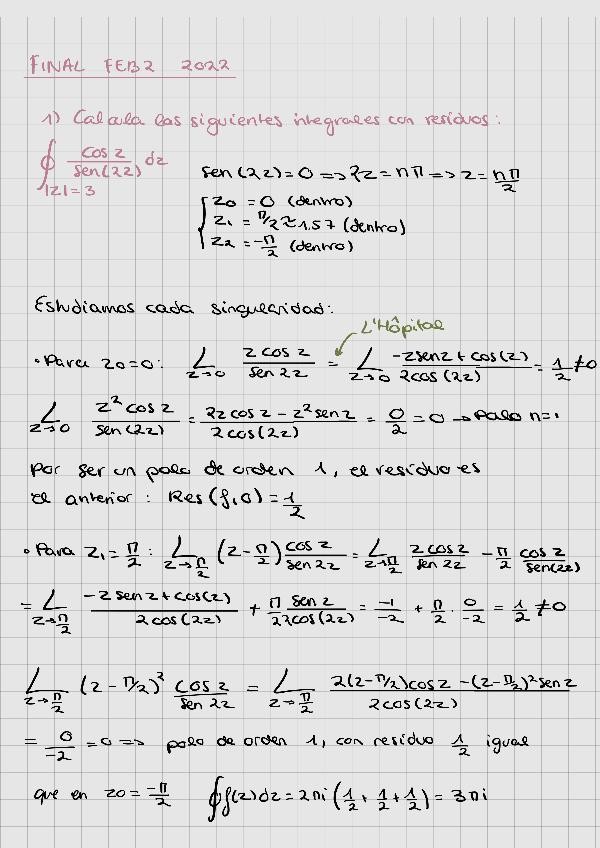 FINAL FEB2 2022
1) Calcula las siguientes integrales con residuos:
∮ |z|=3 cos z / sen(2z) dz
sen(2z)=0 => 2z=nπ => z=nπ/2
{ z₀=0 (dentro)
z₁=π/2≈1.57 (dentro)
z₂=-π/2 (dentro)
Estudiamos cada singularidad:
L'Hôpital
• Para z₀=0: L z→0 z cos z / sen 2z = L z→0 -z sen z + cos(z) / 2cos(2z) = 1/2 ≠0
L z→0 z² cos z / sen(2z) = 2z cos z - z² sen z / 2 cos(2z) = 0/2 = 0 → Polo n=1
Por ser un polo de orden 1, el residuo es
el anterior: Res(f,0)=1/2
• Para z₁=π/2: L z→π/2 (z-π/2) cos z / sen 2z = L z→π/2 z cos z / sen 2z - π/2 cos z / sen(2z)
= L z→π/2 -z sen z + cos(z) / 2 cos(2z) + π/2 sen z / 2cos(2z) = -1/-2 + π/2 · 0/-2 = 1/2 ≠0
L z→π/2 (z-π/2)² cos z / sen 2z = L z→π/2 2(z-π/2)cos z - (z-π/2)² sen z / 2 cos(2z)
= 0/-2 = 0 => polo de orden 1, con residuo 1/2 igual
que en z₀=-π/2 ∮f(z)dz = 2πi (1/2 + 1/2 + 1/2) = 3πi